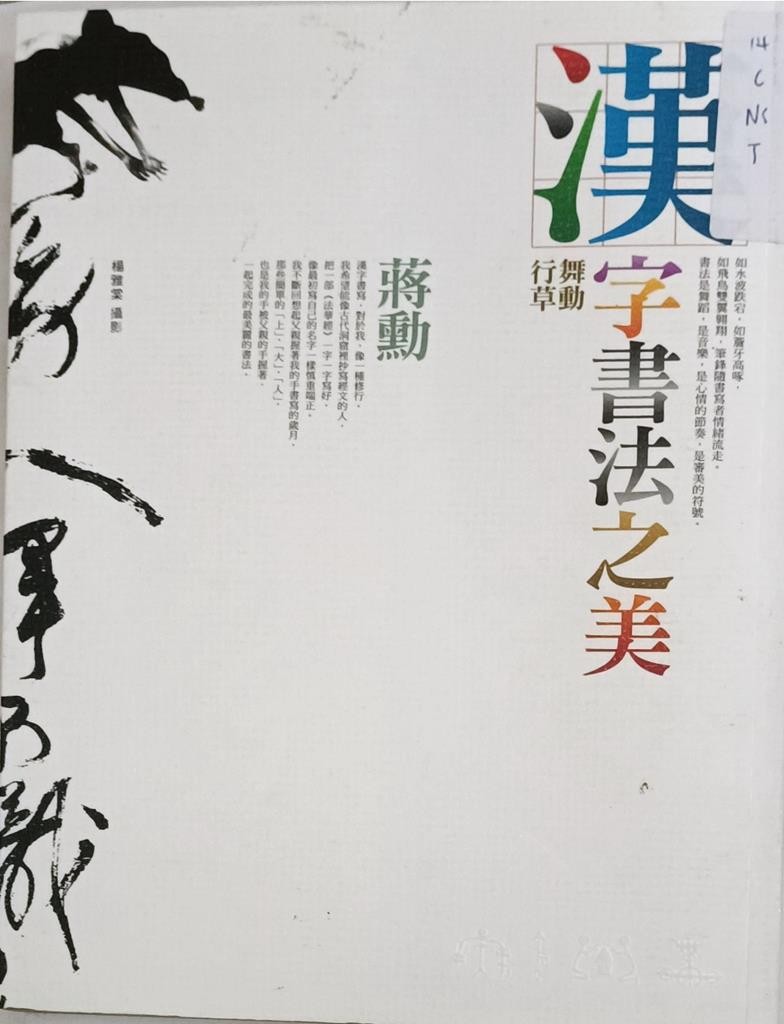 14
C
NS
T
漢字書法之美
舞動
行草
如水波跌宕，如簷牙高啄，
如飛鳥雙翼翱翔，筆鋒隨書寫者情緒流走。
書法是舞蹈，是音樂，是心情的節奏，是審美的符號。
蔣勳
漢字書寫，對於我，像一種修行。
我希望能像古代洞窟裡抄寫經文的人，
把一部《法華經》一字一字寫好，
像最初寫自己的名字一樣慎重端正。
我不斷回想起父親握著我的手書寫的歲月，
那些簡單的「上」、「大」、「人」，
也是我的手被父親的手握著，
一起完成的最美麗的書法。
楊雅棠 攝影